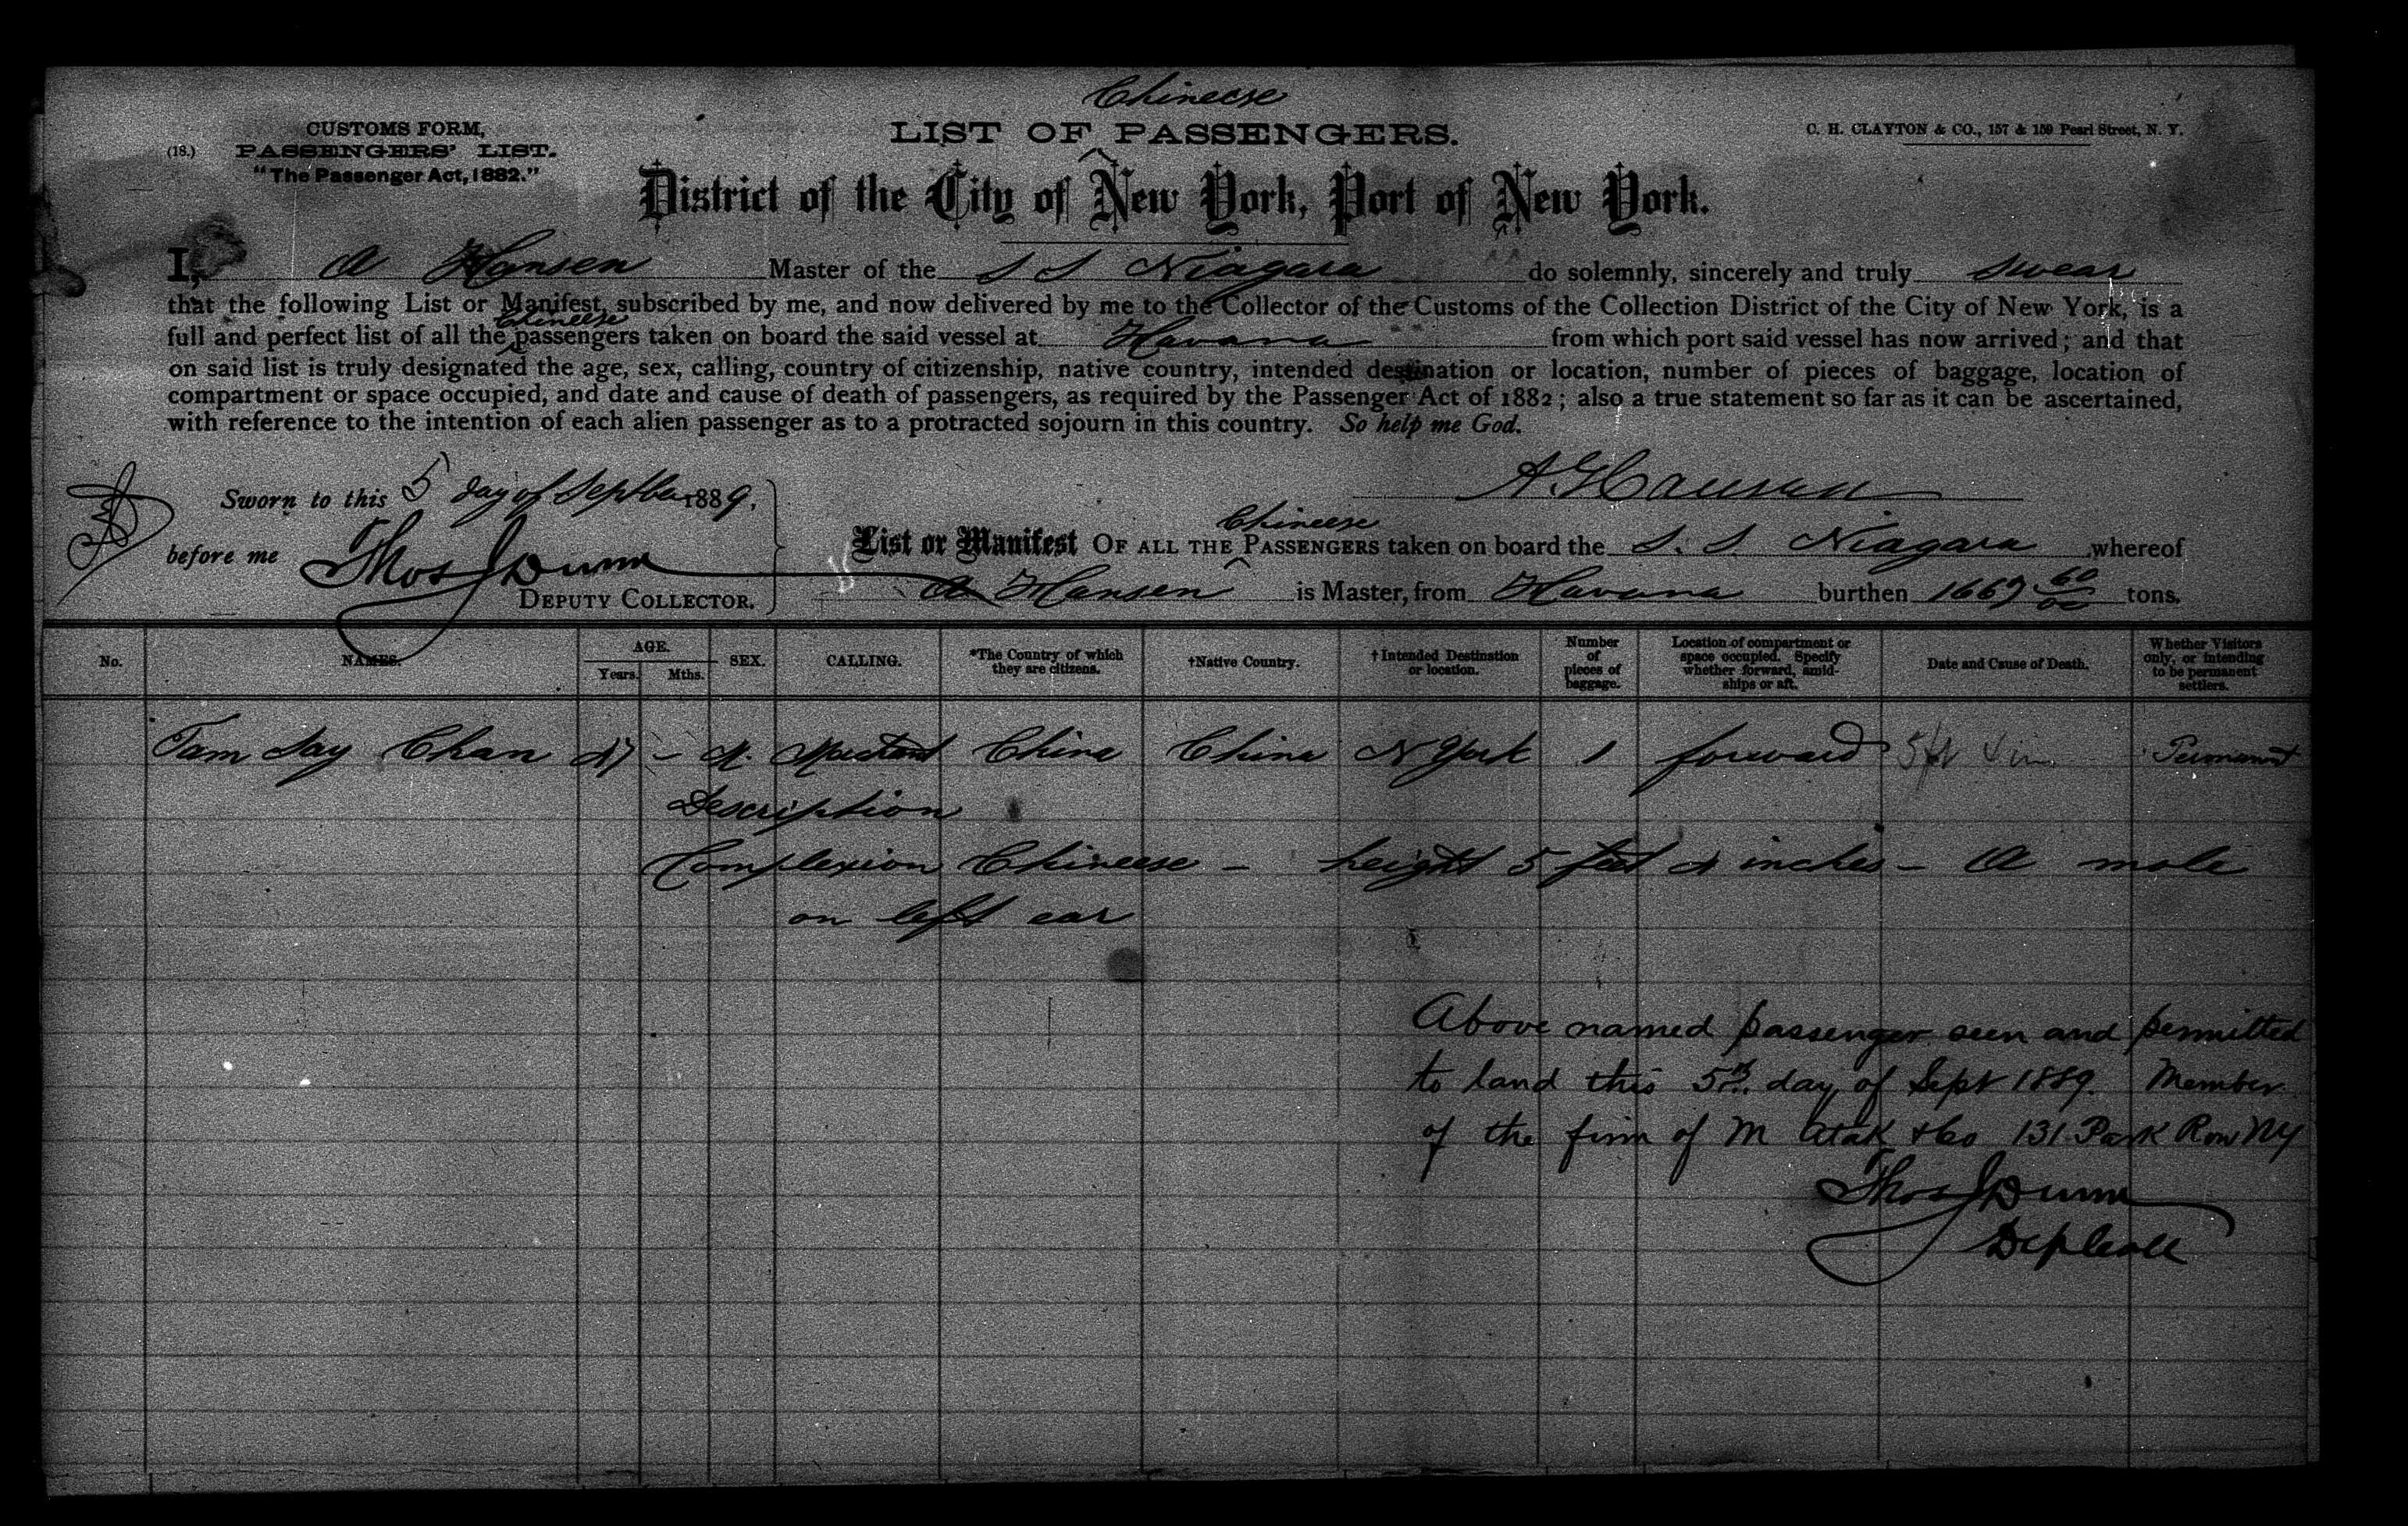 Chineese
CUSTOMS FORM,
LIST OF PASSENGERS.
C. H. CLAYTON & CO., 157 & 159 Pearl Street, N. Y.
(18.) PASSENGERS' LIST.
"The Passenger Act, 1882."
District of the City of New York, Port of New York.
I, A Hansen Master of the S S Niagara do solemnly, sincerely and truly swear
that the following List or Manifest, subscribed by me, and now delivered by me to the Collector of the Customs of the Collection District of the City of New York, is a
full and perfect list of all the Chineese passengers taken on board the said vessel at Havana from which port said vessel has now arrived; and that
on said list is truly designated the age, sex, calling, country of citizenship, native country, intended destination or location, number of pieces of baggage, location of
compartment or space occupied, and date and cause of death of passengers, as required by the Passenger Act of 1882; also a true statement so far as it can be ascertained,
with reference to the intention of each alien passenger as to a protracted sojourn in this country. So help me God.
Sworn to this 5 day of Septber 1889,
A. Hansen
before me Thos J Dunn
DEPUTY COLLECTOR.
Chineese
List or Manifest OF ALL THE PASSENGERS taken on board the S. S Niagara whereof
A Hansen is Master, from Havana burthen tons.
No. NAMES. AGE. Years. Mths. SEX. CALLING. *The Country of which they are citizens. †Native Country. †Intended Destination or location. Number of pieces of baggage. Location of compartment or space occupied. Specify whether forward, amidships or aft. Date and Cause of Death. Whether Visitors only, or intending to be permanent settlers.
Tam Say Chan - M. China China N York 1 forward 5ft 4 in Permanent
Description
Complexion Chineese - height 5 feet 4 inches - A mole
on left ear
Above named passenger seen and permitted
to land this 5th day of Sept 1889. Member
of the firm of M Atak & Co 131 Park Row NY
Thos J Dunn
Dep Coll